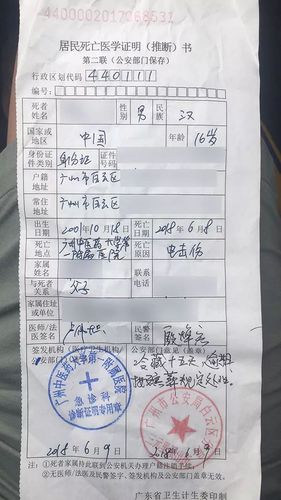 4400000201706853
居民死亡医学证明（推断）书
第二联（公安部门保存）
行政区划代码 440111
编号：
死者姓名 性别 男 民族 汉
国家或地区 中国 年龄 16岁
身份证件类别 身份证 证件号码
户籍地址 广州市白云区
常住地址 广州市白云区
出生日期 2001年10月18日 死亡日期 2018年6月8日
死亡地点 广州中医药大学第一附属医院 死亡原因 电击伤
家属姓名 联系电话
与死者关系 父子
家属住址或单位
医师/法医签名 民警签名
签发机构（医疗卫生机构） 公安部门意见（盖章）
广州中医药大学第一附属医院
冷藏十五天
广州市公安局白云区
2018年6月9日 2018年6月9日
注：①死者家属持此联到公安机关办理户籍注销手续；
②无医师/法医及民警签字、签发机构及公安部门盖章无效。
广东省卫生计生委印制